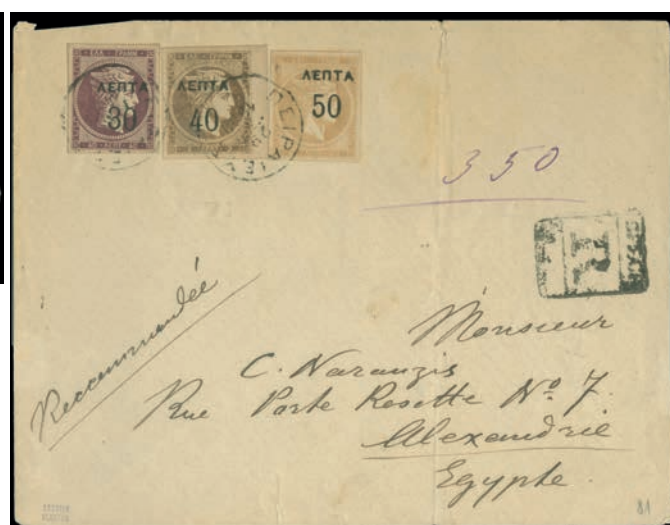 ΛΕΠΤΑ ΛΕΠΤΑ ΛΕΠΤΑ
30 40 50
ΠΕΙΡΑΙΕΥ
350
R
Reccommandée
Monsieur
C. Naranzis
Rue Porte Rosette Nº 7.
Alexandrie
Egypte.
81